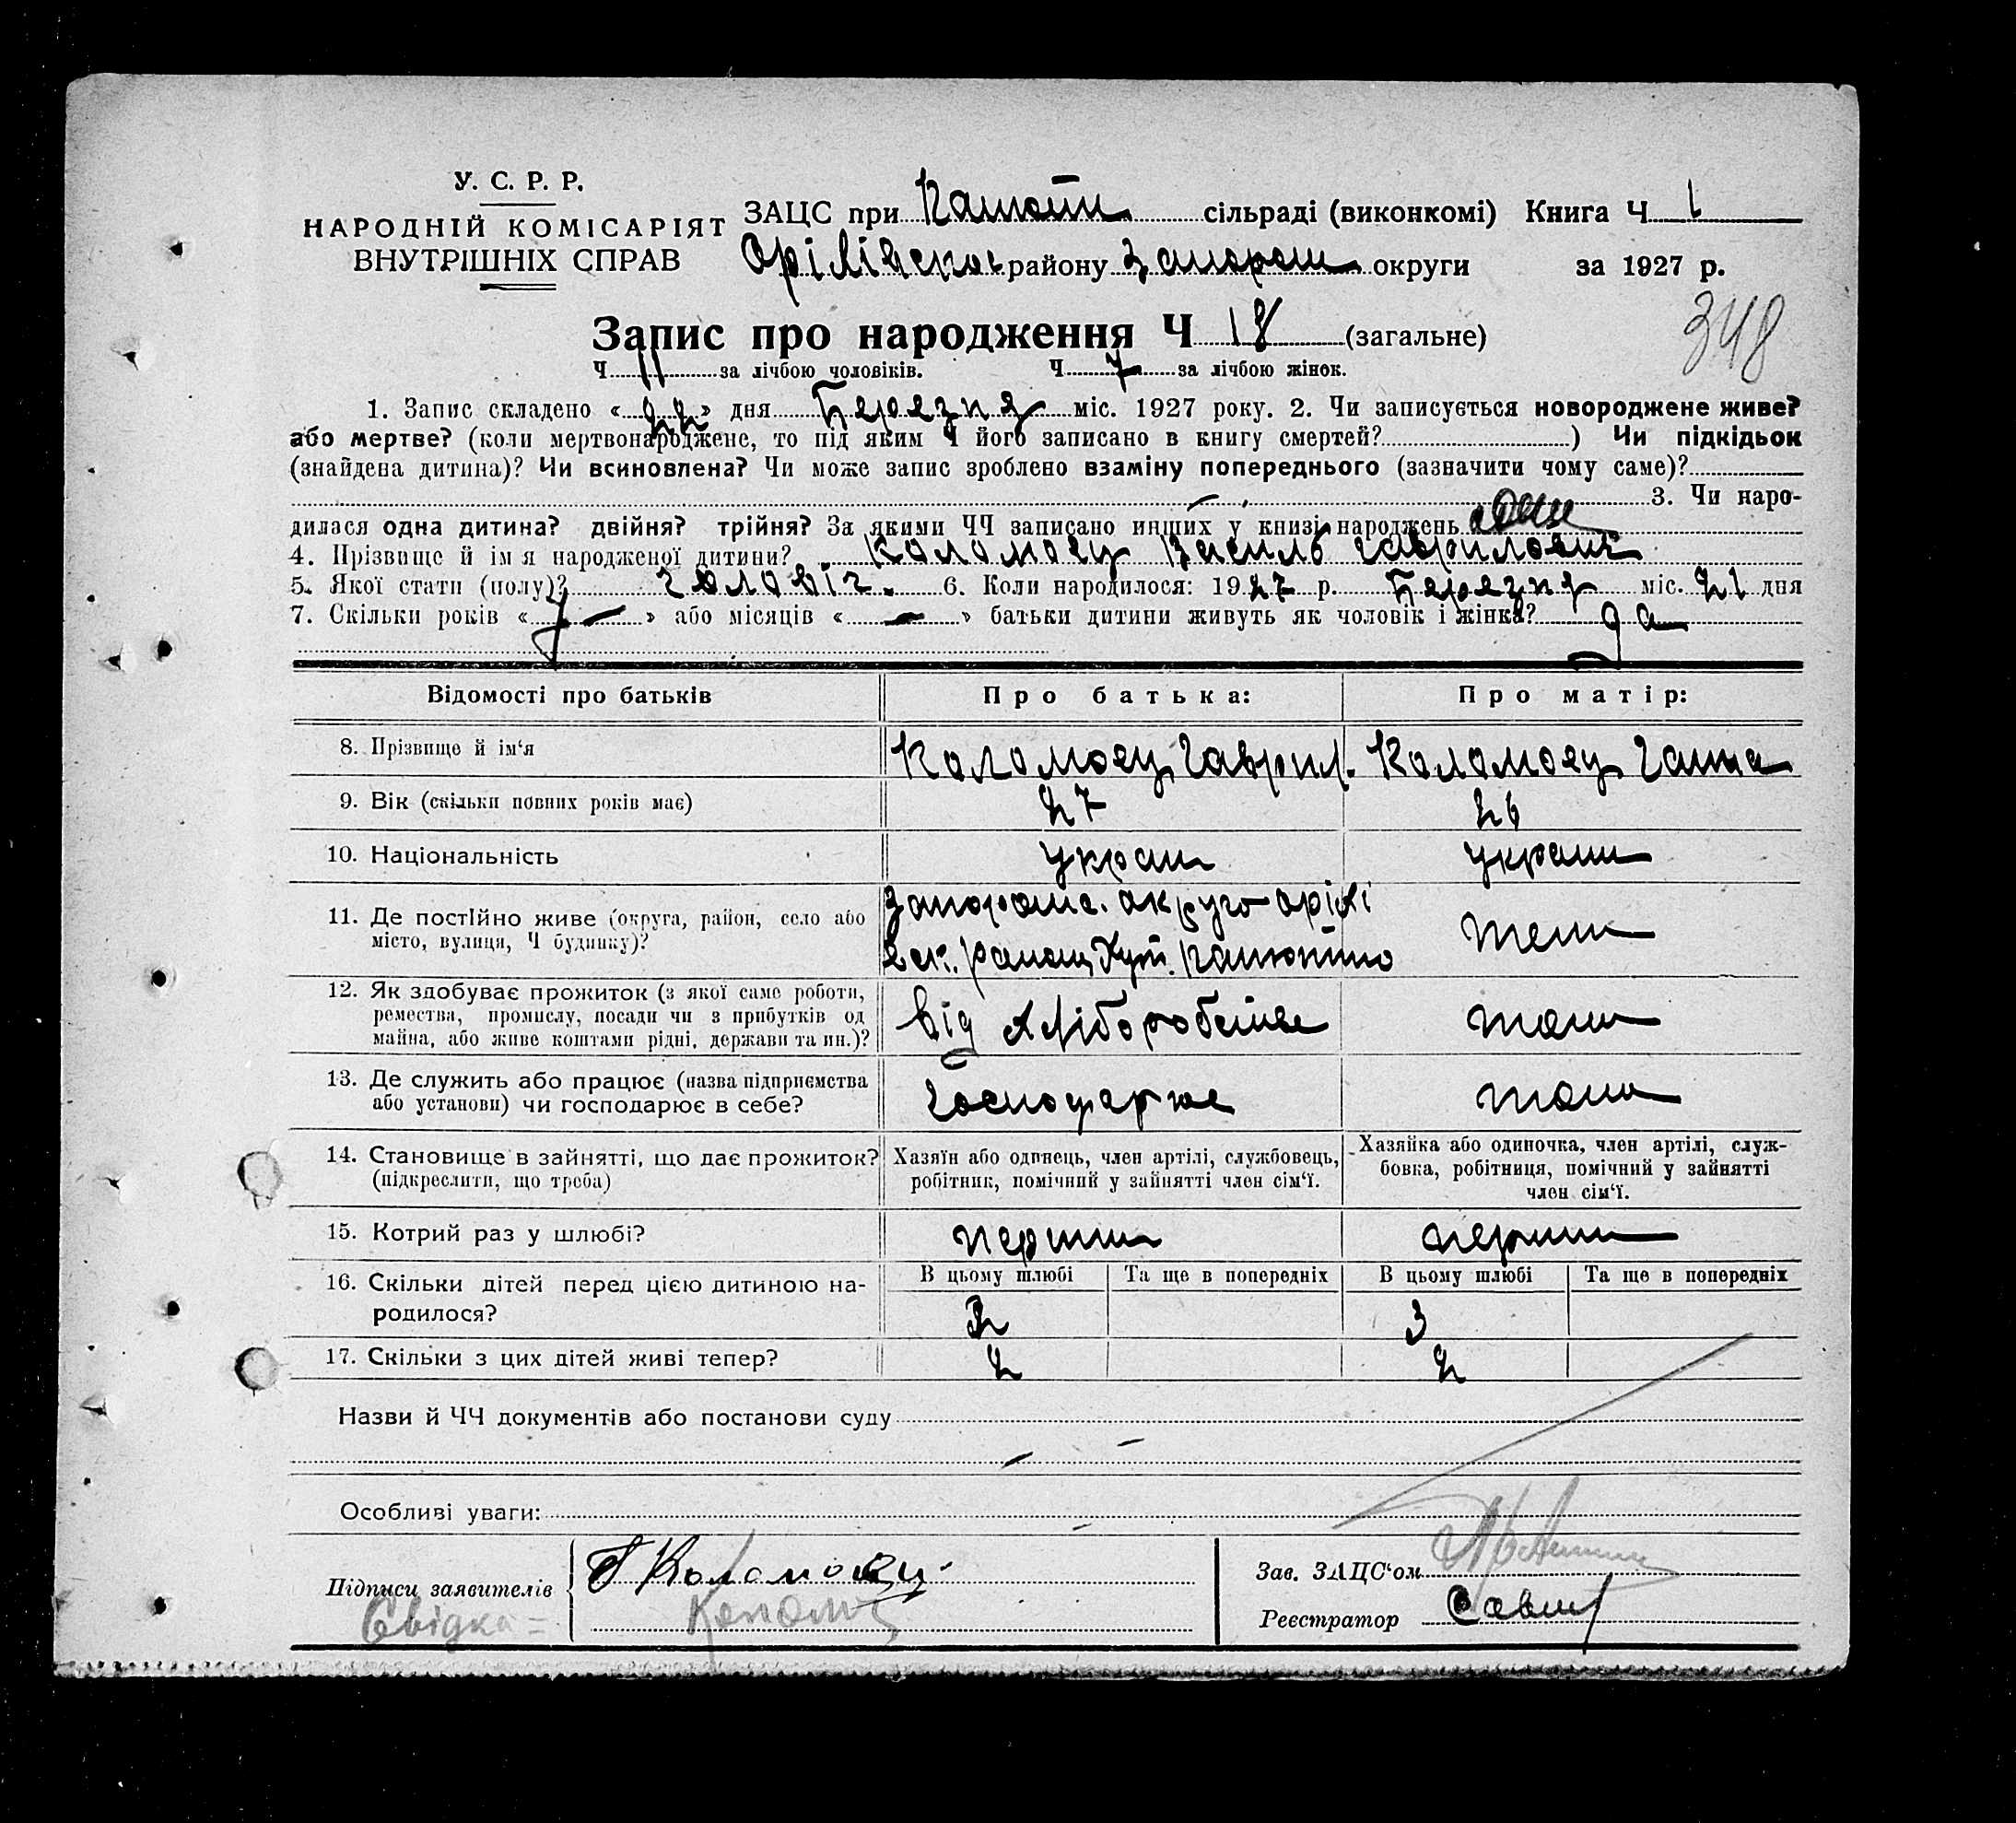 У. С. Р. Р.
НАРОДНІЙ КОМІСАРІЯТ
ВНУТРІШНІХ СПРАВ
ЗАЦС при сільраді (виконкомі) Книга Ч 1
району округи за 1927 р.
348
Запис про народження Ч 18 (загальне)
Ч 11 за лічбою чоловіків. Ч 7 за лічбою жінок.
1. Запис складено «22» дня Березня міс. 1927 року. 2. Чи записується новороджене живе?
або мертве? (коли мертвонароджене, то під яким Ч його записано в книгу смертей?) Чи підкідьок
(знайдена дитина)? Чи всиновлена? Чи може запис зроблено взаміну попереднього (зазначити чому саме)?
3. Чи наро-
дилася одна дитина? двійня? трійня? За якими ЧЧ записано инших у книзі народжень
4. Прізвище й ім я народженої дитини? Коломоец Василь Гаврилович
5. Якої стати (полу)? чоловіч. 6. Коли народилося: 1927 р. Березня міс. 21 дня
7. Скільки років «7 —» або місяців « — » батьки дитини живуть як чоловік і жінка? да
Відомості про батьків Про батька: Про матір:
8. Прізвище й ім‘я Коломоец Гаврил. Коломоец Гаша
9. Вік (скільки повних років має) 27 26
10. Національність україн україн
11. Де постійно живе (округа, район, село або
місто, вулиця, Ч будинку)?
12. Як здобуває прожиток (з якої саме роботи,
ремества, промислу, посади чи з прибутків од
майна, або живе коштами рідні, держави та ин.)? Від
13. Де служить або працює (назва підприємства
або установи) чи господарює в себе? Господарює
14. Становище в зайнятті, що дає прожиток? Хазяїн або одинець, член артілі, службовець, Хазяйка або одиночка, член артілі, служ-
(підкреслити, що треба) робітник, помічний у зайнятті член сім‘ї. бовка, робітниця, помічний у зайнятті
член сім‘ї.
15. Котрий раз у шлюбі? перший перший
16. Скільки дітей перед цією дитиною на- В цьому шлюбі Та ще в попередніх В цьому шлюбі Та ще в попередніх
родилося? 3
17. Скільки з цих дітей живі тепер? 2 2
Назви й ЧЧ документів або постанови суду
Особливі уваги:
Підписи заявителів Г Коломоец
Свідка =
Зав. ЗАЦС‘ом
Реєстратор